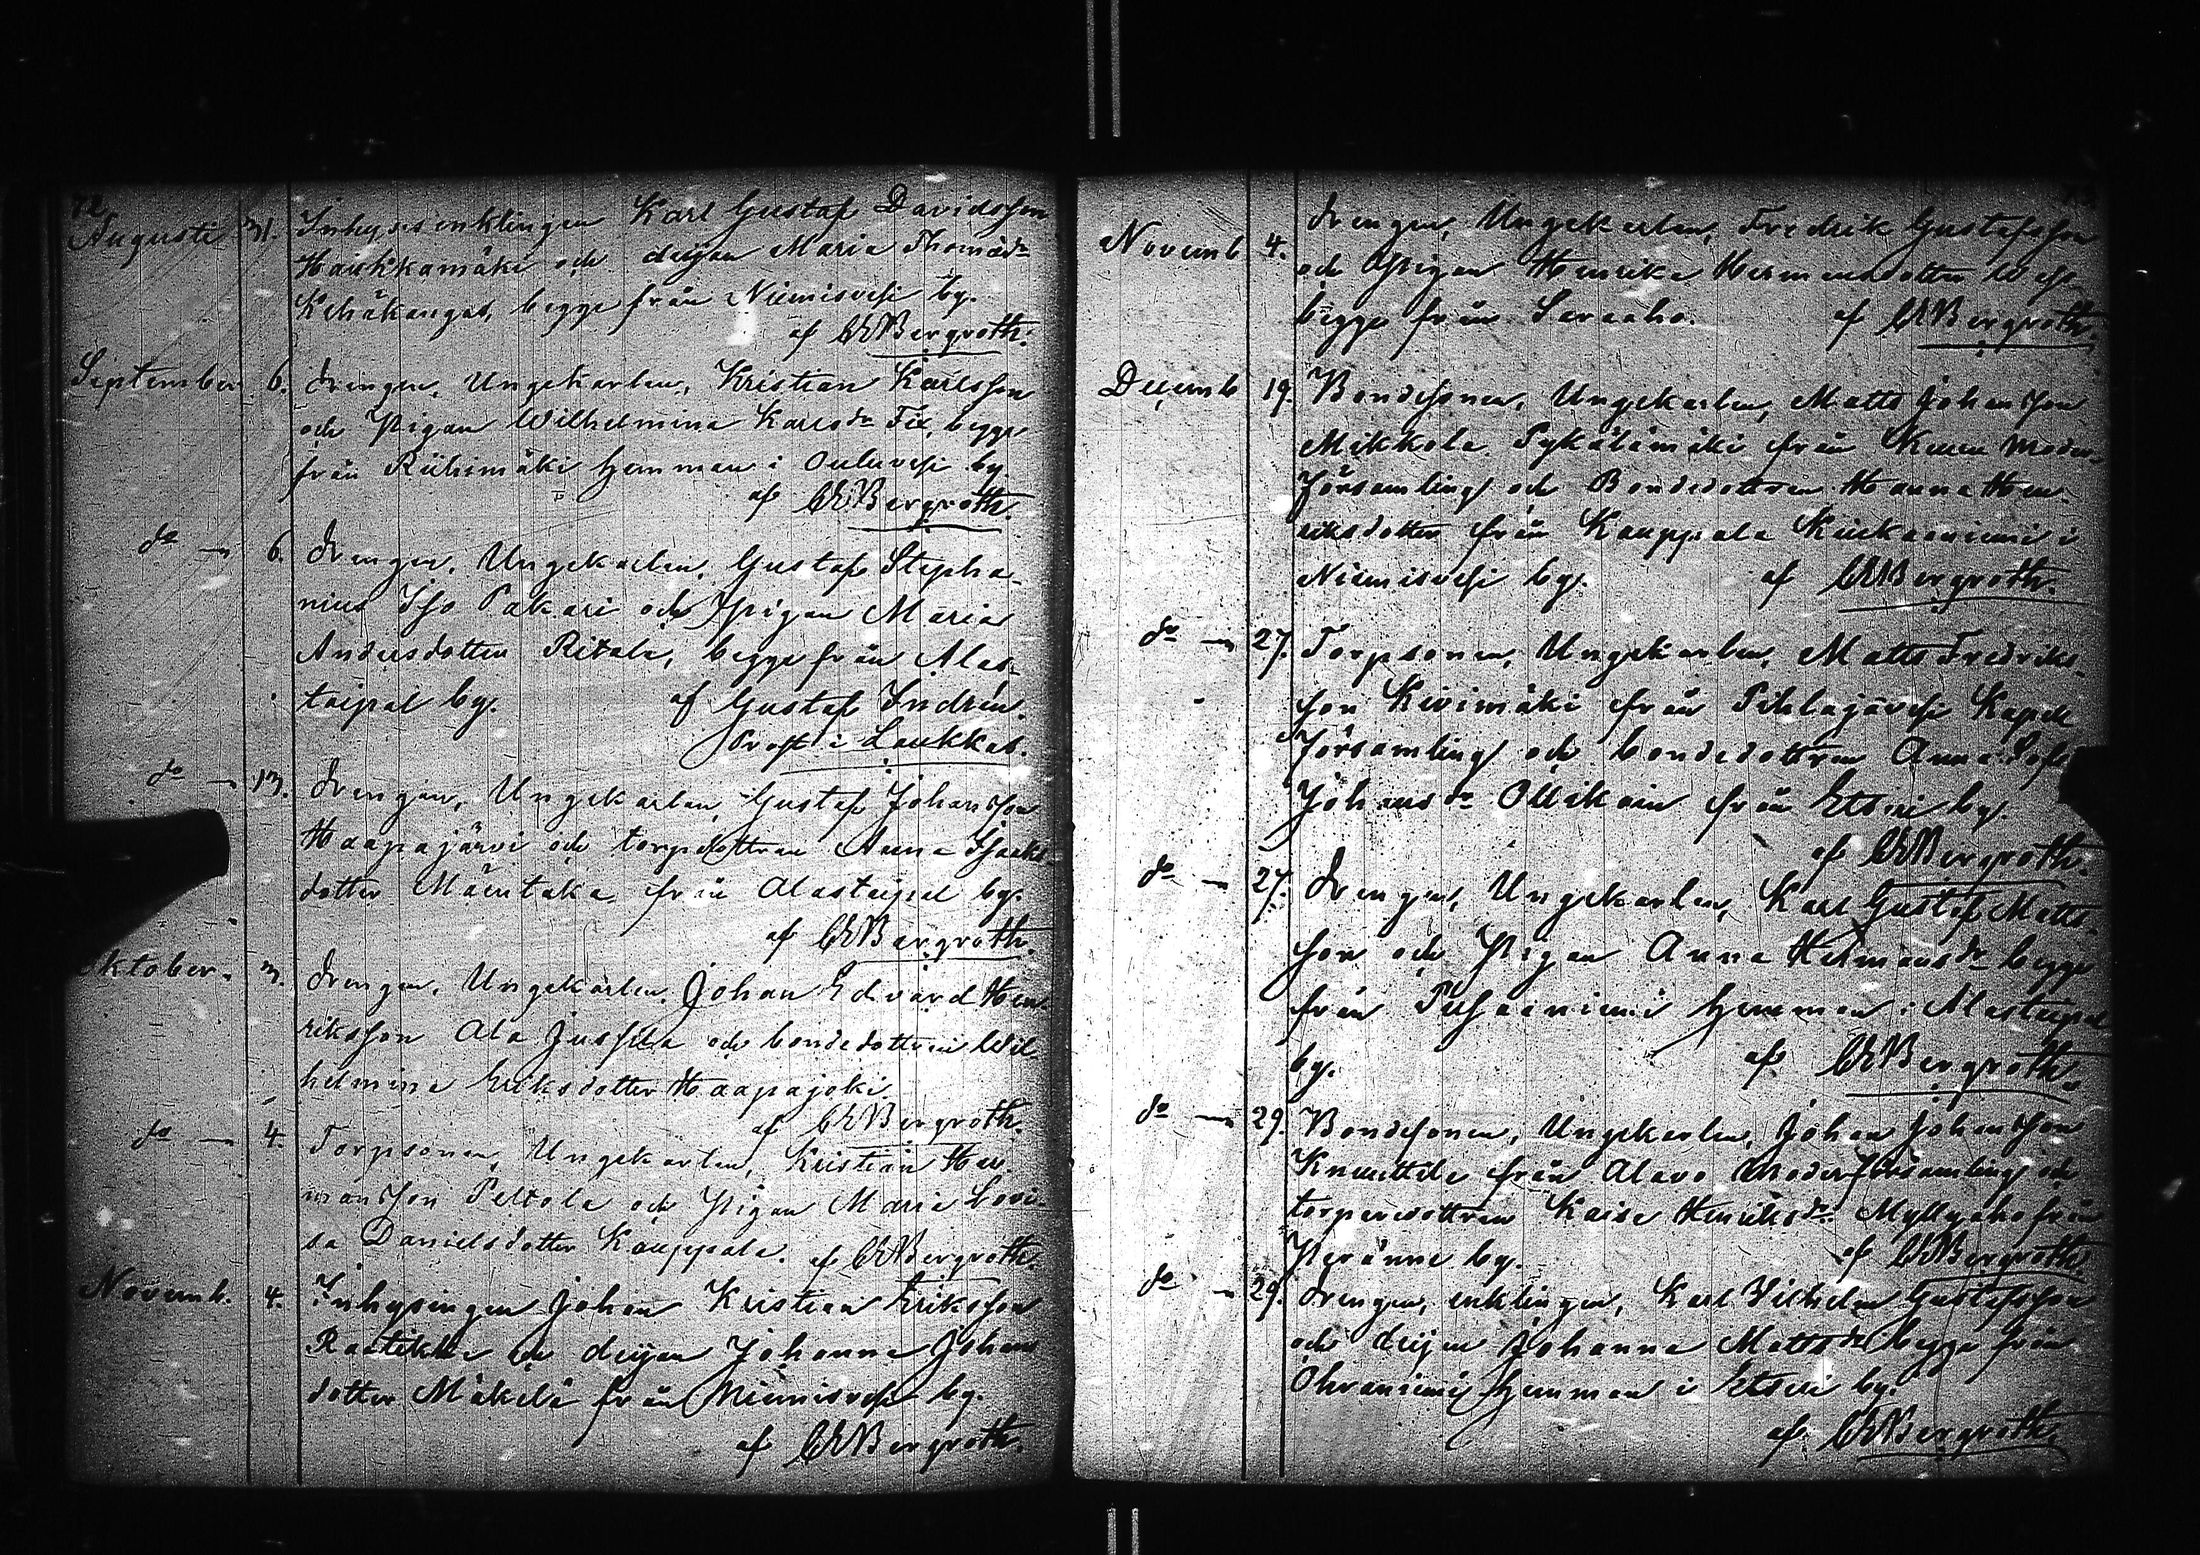 72
Augusti 31. Inhyses enklingen Karl Gustaf Davidsson
Haukkamäki och deijan Maria Thomasdr
Kehäkangas, begge från Niemisvesi by.
af CEBergroth.
September 6. drengen, Ungekarlen, Kristian Karlsson
och Pigan Wilhelmina Karlsdr begge
från Riihimäki hemman i Ouluvesi by
af CEBergroth.
do — 6. drengen, Ungekarlen, Gustaf Stepha-
nius Iso Pakari och Pigan Maria
Andersdotter Ritola, begge från Alas-
taipal by. af Gustaf Indrén.
Prost i Laukkas.
do — 13. drengen, Ungekarlen, Gustaf Johansson
Haapajärvi och torpdottren Anna Isaks
dotter från Alastaipal by.
af CEBergroth.
Oktober. 3. drengen, Ungekarlen, Johan Edvard Hen-
riksson Ala Jussila och bondedottren Wil
helmina Eriksdotter Haapajoki.
af CEBergroth.
do — 4. Torpsonen, Ungekarlen, Kristian Her-
mansson Peltola och Pigan Maria Lovi-
sa Danielsdotter Kauppala. af CEBergroth.
Novemb. 4. Inhysingen Johan Kristian Eriksson
Rastikka och deijan Johanna Johans
dotter Mäkelä från Niemisvesi by.
af CEBergroth.
73
Novemb 4. drengen, Ungekarlen, Fredrik Gustafsson
och Pigan Henrika Hermansdotter
begge från af CEBergroth.
Decemb 19. Bondesonen, Ungekarlen, Matts Johansson
Mikkola Pykälämäki från Keuru Moder-
församling och Bondedottren Hanna Hen-
riksdotter från Kauppala Kiukaanniemi i
Niemisvesi by. af CEBergroth.
do — 27. Torpsonen, Ungekarlen, Matts Fredriks-
son Kivimäki från Pihlajavesi Kapell
församling och bondedottren Anna Sofia
Johansdr Ollikain från Etseri by.
af CEBergroth.
do — 27. drengen, Ungekarlen, Karl Gustaf Matts-
son och Pigan Anna Hermansdr begge
från hemman i Alastaipal
by. af CEBergroth.
do — 29. Bondesonen, Ungekarlen, Johan Johansson
Knuuttila från Alavo Moderförsamling och
torparedottren Kaisa Henriksdr Myllyaho från
Peränne by. af CEBergroth.
do — 29. drengen, enklingen, Karl Vilhelm Gustafsson
och deijan Johanna Mattsdr begge från
Ohraniemi hemman i Etseri by.
af CEBergroth.